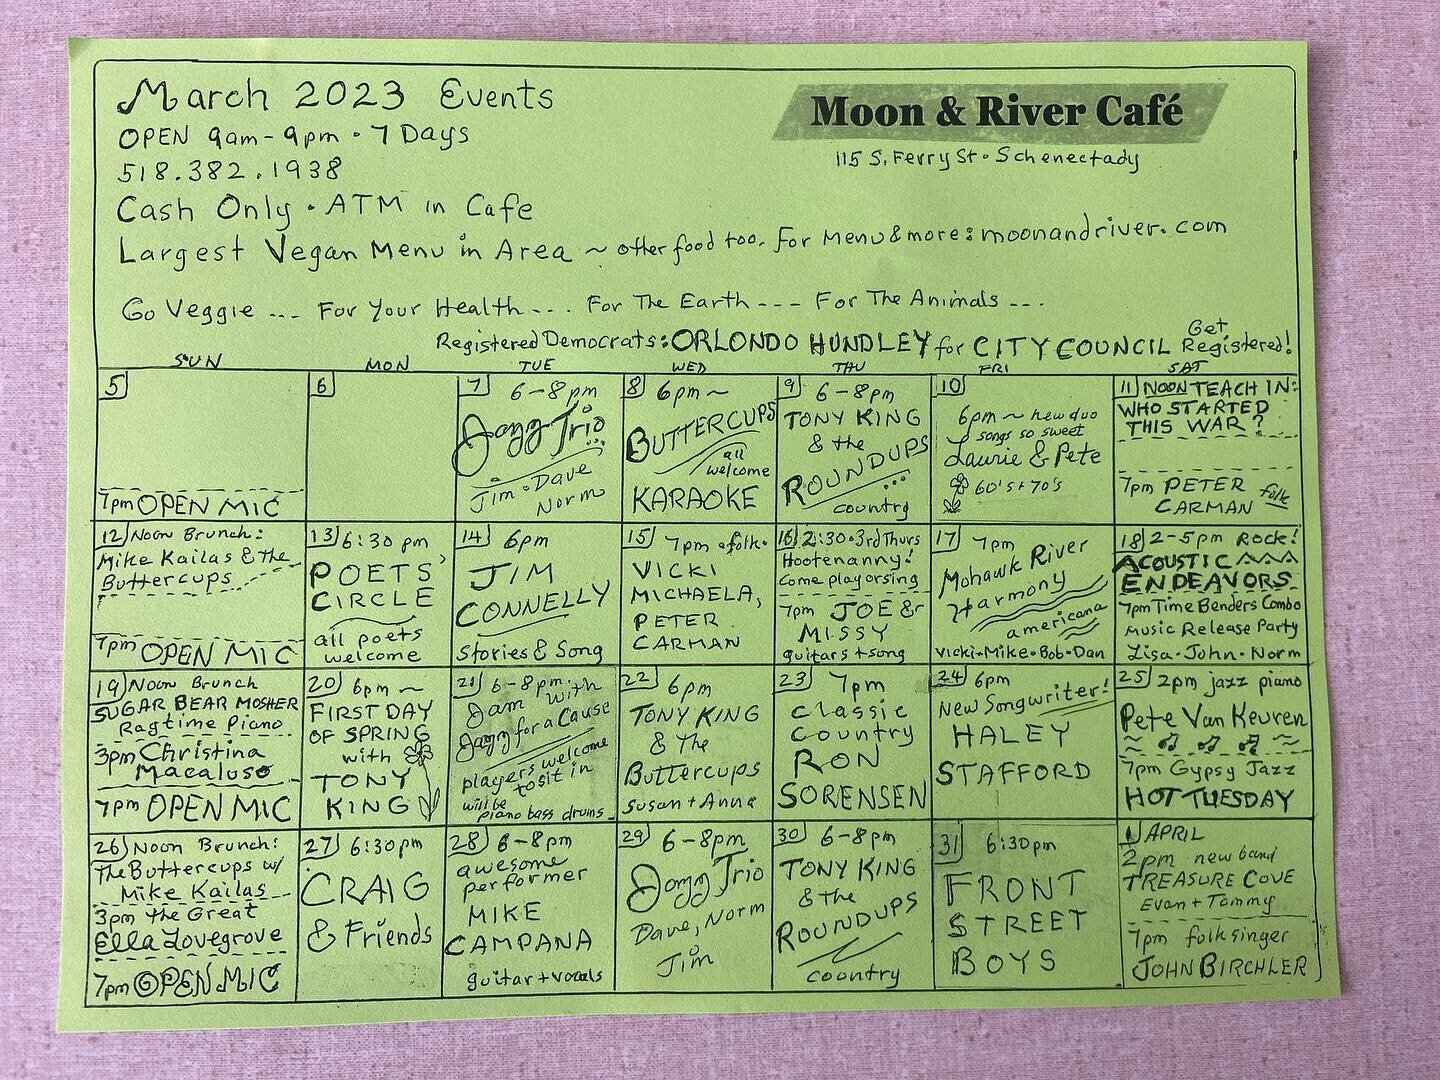 March 2023 Events
OPEN 9am-9pm • 7 Days
518.382.1938
Cash Only • ATM in Cafe
Largest Vegan Menu in Area ~ other food too. For Menu & more: moonandriver.com
Moon & River Café
115 S. Ferry St • Schenectady
Go Veggie ... For Your Health... For The Earth --- For The Animals ...
Registered Democrats: ORLONDO HUNDLEY for CITY COUNCIL Get Registered!
SUN MON TUE WED THU FRI SAT
5
7pm OPEN MIC
6
7 6-8pm
Jazz Trio
Jim • Dave
Norm
8 6pm ~
BUTTERCUPS
all
welcome
KARAOKE
9 6-8pm
TONY KING
& the
ROUNDUPS
country
10
6pm ~ new duo
songs so sweet
Laurie & Pete
60's + 70's
11 NOON TEACH IN:
WHO STARTED
THIS WAR?
7pm PETER
CARMAN folk
12 Noon Brunch:
Mike Kailas & the
Buttercups
7pm OPEN MIC
13 6:30 pm
POETS'
CIRCLE
all poets
welcome
14 6pm
JIM
CONNELLY
Stories & Song
15 7pm • folk •
VICKI
MICHAELA,
PETER
CARMAN
16 2:30 • 3rd Thurs
Hootenanny!
Come play or sing
7pm JOE &
MISSY
guitars + song
17 7pm
Mohawk River
Harmony
americana
Vicki • Mike • Bob • Dan
18 2-5pm Rock!
ACOUSTIC
ENDEAVORS
7pm Time Benders Combo
Music Release Party
Lisa • John • Norm
19 Noon Brunch
SUGAR BEAR MOSHER
Ragtime Piano
3pm Christina
Macaluso
7pm OPEN MIC
20 6pm ~
FIRST DAY
OF SPRING
with
TONY
KING
21 6-8pm
Jam with
Jazz for a Cause
players welcome
to sit in
will be
piano bass drums
22 6pm
TONY KING
& The
Buttercups
Susan + Anna
23 7pm
Classic
Country
RON
SORENSEN
24 6pm
New Songwriter!
HALEY
STAFFORD
25 2pm jazz piano
Pete Van Keuren
7pm Gypsy Jazz
HOT TUESDAY
26 Noon Brunch:
The Buttercups w/
Mike Kailas
3pm the Great
Ella Lovegrove
7pm OPEN MIC
27 6:30pm
CRAIG
& Friends
28 6-8pm
awesome
performer
MIKE
CAMPANA
guitar + vocals
29 6-8pm
Jazz Trio
Dave, Norm
Jim
30 6-8pm
TONY KING
& the
ROUNDUPS
country
31 6:30pm
FRONT
STREET
BOYS
1 APRIL
2pm new band
TREASURE COVE
Evan + Tammy
7pm folksinger
JOHN BIRCHLER